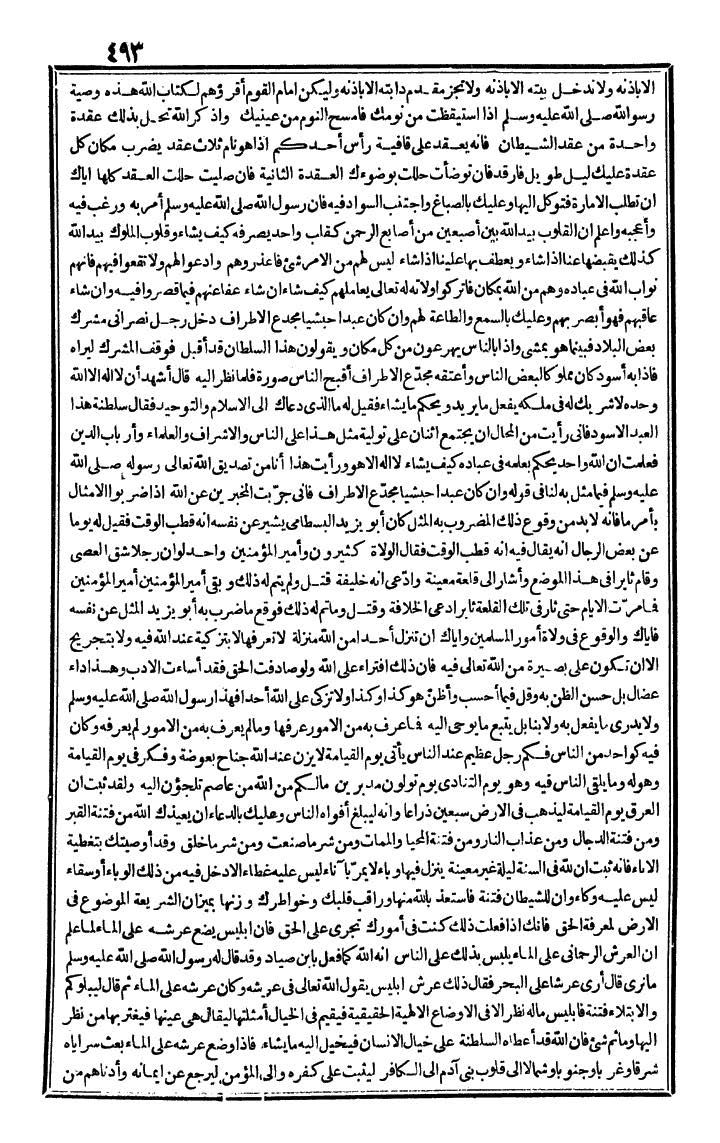 ٤٩٣
الا باذنه ولا ندخل بيته الا باذنه ولا تحجز مقدم دابته الا باذنه وليكن امام القوم أقرؤهم لكتاب الله هذه وصية
رسول الله صلى الله عليه وسلم اذا استيقظت من نومك فامسح النوم من عينيك واذكر الله تحل بذلك عقدة
واحدة من عقد الشيطان فانه يعقد على قافية رأس أحدكم اذا هو نام ثلاث عقد يضرب مكان كل
عقدة عليك ليل طويل فارقد فان توضأت حللت بوضوءك العقدة الثانية فان صليت حللت العقد كلها اياك
ان تطلب الامارة فتوكل اليها وعليك بالصباغ واجتنب السواد فيه فان رسول الله صلى الله عليه وسلم أمر به ورغب فيه
وأعجبه واعلم ان القلوب بيد الله بين أصبعين من أصابع الرحمن كقلب واحد يصرفه كيف يشاء وقلوب الملوك بيد الله
كذلك يقبضها عنا اذا شاء ويعطف بها علينا اذا شاء ليس لهم من الامر شئ فاعذروهم وادعوا لهم ولا تقعوا فيهم فانهم
نواب الله فى عباده وهم من الله بمكان فاتركوا ولاته له تعالى يعاملهم كيف شاء ان شاء عفا عنهم فيما قصروا فيه وان شاء
عاقبهم فهو أبصر بهم وعليك بالسمع والطاعة لهم وان كان عبدا حبشيا مجدع الاطراف دخل رجل نصرانى مشرك
بعض البلاد فبينما هو يمشى واذا بالناس يهرعون من كل مكان ويقولون هذا السلطان قد أقبل فوقف المشرك ليراه
فاذا به أسود كان مملوكا لبعض الناس وأعتقه مجدع الاطراف أقبح الناس صورة فلما نظر اليه قال أشهد أن لا اله الا الله
وحده لا شريك له فى ملكه يفعل ما يريد ويحكم ما يشاء فقيل له ما الذى دعاك الى الاسلام والتوحيد فقال سلطنة هذا
العبد الاسود فانى رأيت من المحال ان يجتمع اثنان على تولية مثل هذا على الناس والاشراف والعلماء وأرباب الدين
فعلمت ان الله واحد يحكم بعلمه فى عباده كيف يشاء لا اله الا هو ورأيت هذا أنا من تصديق الله تعالى رسوله صلى الله
عليه وسلم فيما مثل به لنا فى قوله وان كان عبدا حبشيا مجدع الاطراف فانى جربت المخبرين عن الله اذا ضربوا الامثال
بأمر ما فانه لا بد من وقوع ذلك المضروب به المثل كان أبو يزيد البسطامى يشير عن نفسه انه قطب الوقت فقيل له يوما
عن بعض الرجال انه يقال فيه انه قطب الوقت فقال الولاة كثيرون وأمير المؤمنين واحد لو ان رجلا شق العصى
وقام ثايرا فى هذا الموضع وأشار الى قلعة معينة وادعى انه خليفة قتل ولم يتم له ذلك وبقى أمير المؤمنين أمير المؤمنين
فما مرت الايام حتى ثار فى تلك القلعة ثاير ادعى الخلافة وقتل وما تم له ذلك فوقع ما ضرب به أبو يزيد المثل عن نفسه
فاياك والوقوع فى ولاة أمور المسلمين واياك ان تنزل أحدا من الله منزلة لا تعرفها لا بتزكية عند الله فيه ولا بتجريح
الا ان تكون على بصيرة من الله تعالى فيه فان ذلك افتراء على الله ولو صادفت الحق فقد أساءت الادب وهذا داء
عضال بل حسن الظن به وقل فيما أحسب وأظن هو كذا وكذا ولا تزكى على الله أحدا فهذا رسول الله صلى الله عليه وسلم
ولا يدرى ما يفعل به ولا بنا بل يتبع ما يوحى اليه فما عرف به من الامور عرفها وما لم يعرف به من الامور لم يعرفه وكان
فيه كواحد من الناس فكم رجل عظيم عند الناس يأتى يوم القيامة لا يزن عند الله جناح بعوضة وفكر فى يوم القيامة
وهوله وما يلقى الناس فيه وهو يوم التنادى يوم تولون مدبرين مالكم من الله من عاصم تلجؤن اليه ولقد ثبت ان
العرق يوم القيامة ليذهب فى الارض سبعين ذراعا وانه ليبلغ أفواه الناس وعليك بالدعاء ان يعيذك الله من فتنة القبر
ومن فتنة الدجال ومن عذاب النار ومن فتنة المحيا والممات ومن شر ما صنعت ومن شر ما خلق وقد أوصيتك بتغطية
الاناء فانه ثبت ان لله فى السنة ليلة غير معينة ينزل فيها وباء لا يمر بآناء ليس عليه غطاء الا دخل فيه من ذلك الوباء أو سقاء
ليس عليه وكاء وان للشيطان فتنة فاستعذ بالله منها وراقب قلبك وخواطرك وزنها بميزان الشريعة الموضوع فى
الارض لمعرفة الحق فانك اذا فعلت ذلك كنت فى أمورك تجرى على الحق فان ابليس يضع عرشه على الماء لما علم
ان العرش الرحمانى على الماء يلبس بذلك على الناس انه الله كما فعل بابن صياد وقد قال له رسول الله صلى الله عليه وسلم
ما ترى قال أرى عرشا على البحر فقال ذلك عرش ابليس يقول الله تعالى فى عرشه وكان عرشه على الماء ثم قال ليبلوكم
والابتلاء فتنة فابليس ماله نظر الا فى الاوضاع الالهية الحقيقية فيقيم فى الخيال أمثلتها ليقال هى عينها فيغتر بها من نظر
اليها وما ثم شئ فان الله قد أعطاه السلطنة على خيال الانسان فيخيل اليه ما يشاء فاذا وضع عرشه على الماء بعث سراياه
شرقا وغربا وجنوبا وشمالا الى قلوب بنى آدم الى الكافر ليثبت على كفره والى المؤمن ليرجع عن ايمانه وأدناهم من